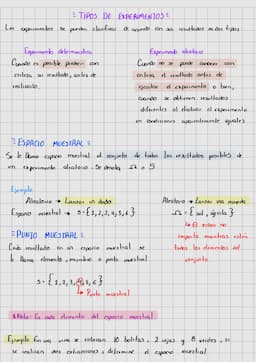 : TIPOS DE EXPERIMENTOS :
Los experimentos se pueden clasificar de acuerdo con sus resultados en dos tipos
Experimento determinístico
Cuando es posible predecir con
certeza su resultado, antes de
realizarlo.
Experimento aleatorio
Cuando no se puede conocer con
certeza el resultado antes de
ejecutar el experimento o bien,
cuando se obtienen resultados
diferentes al efectuar el experimento
en condiciones aparentemente iguales
: ESPACIO MUESTRAL :
Se le llama espacio muestral al conjunto de todos los resultados posibles de
un experimento aleatorio. Se denota Ω o S
Ejemplo
Aleatorio → Lanzar un dado
Espacio muestral → S={1,2,3,4,5,6}
Aleatorio → Lanzar una moneda
Ω = { sol, águila }
El orden no
importa mientras estén
todos los elementos del
conjunto
: PUNTO MUESTRAL :
Cada resultado en un espacio muestral se
le llama elemento, miembro o punto muestral
S = { 1,2,3,4,5,6 }
Punto muestral
* Nota: Es cada elemento del espacio muestral
Ejemplo En una urna se colocan 10 bolitas, 2 rojas y 8 verdes, si
se realizan dos extracciones, determine el espacio muestral